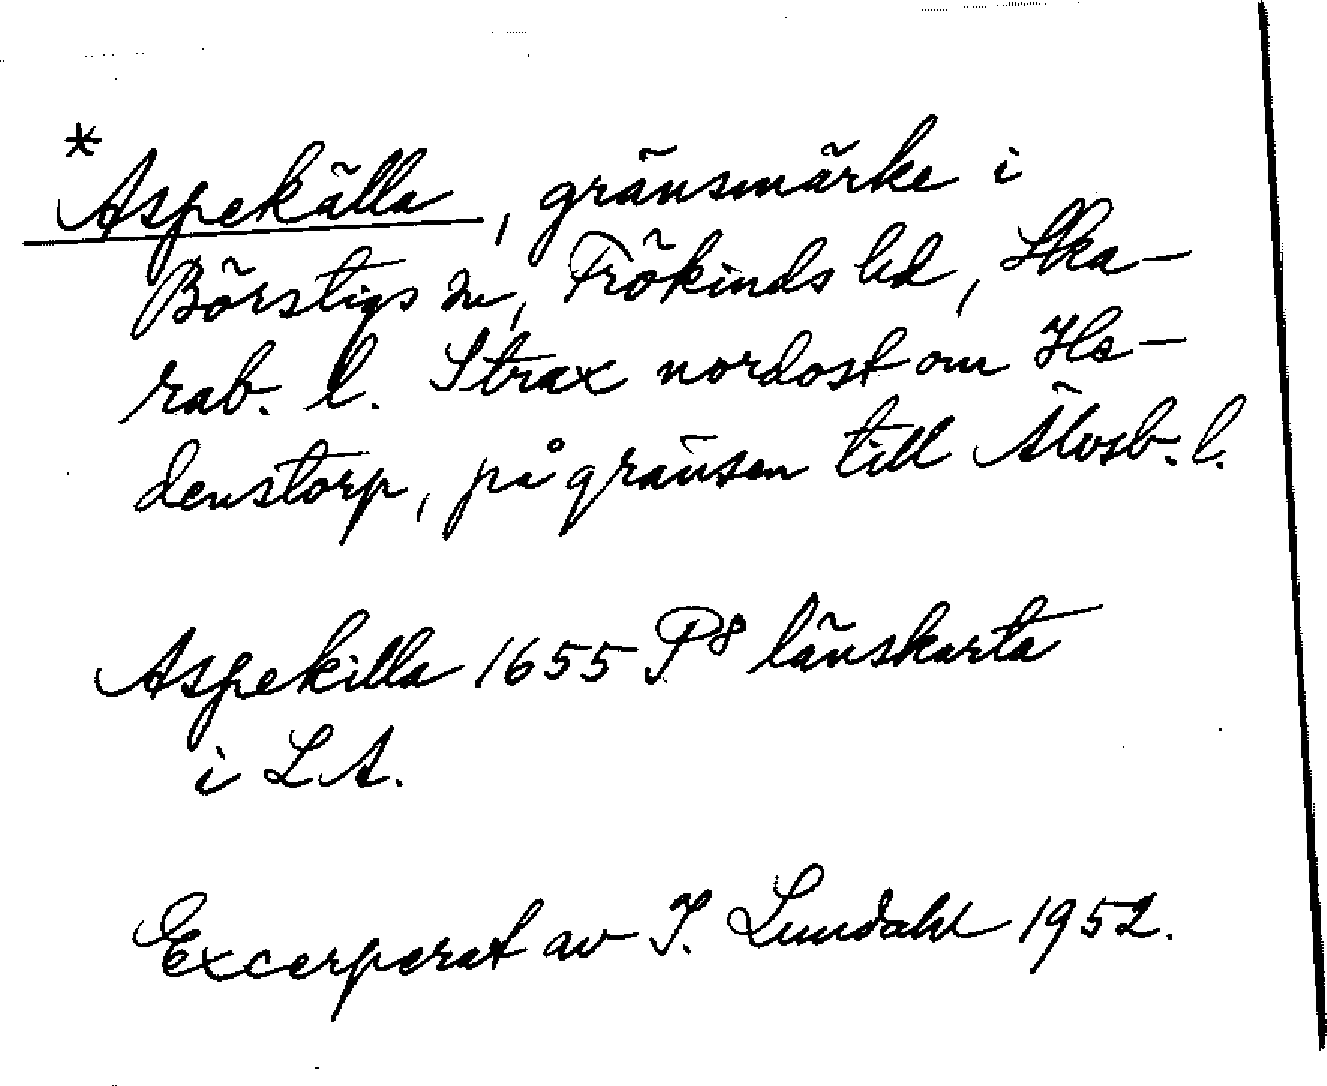 *Aspekälla, gränsmärke i
Börstigs sn, Frökinds hd, Ska-
rab. l. Strax nordost om He-
denstorp, på gränsen till Älvsb. l.
Aspekilla 1655 P8 länskarta
i LA.
Excerperat av I. Lundahl 1952.